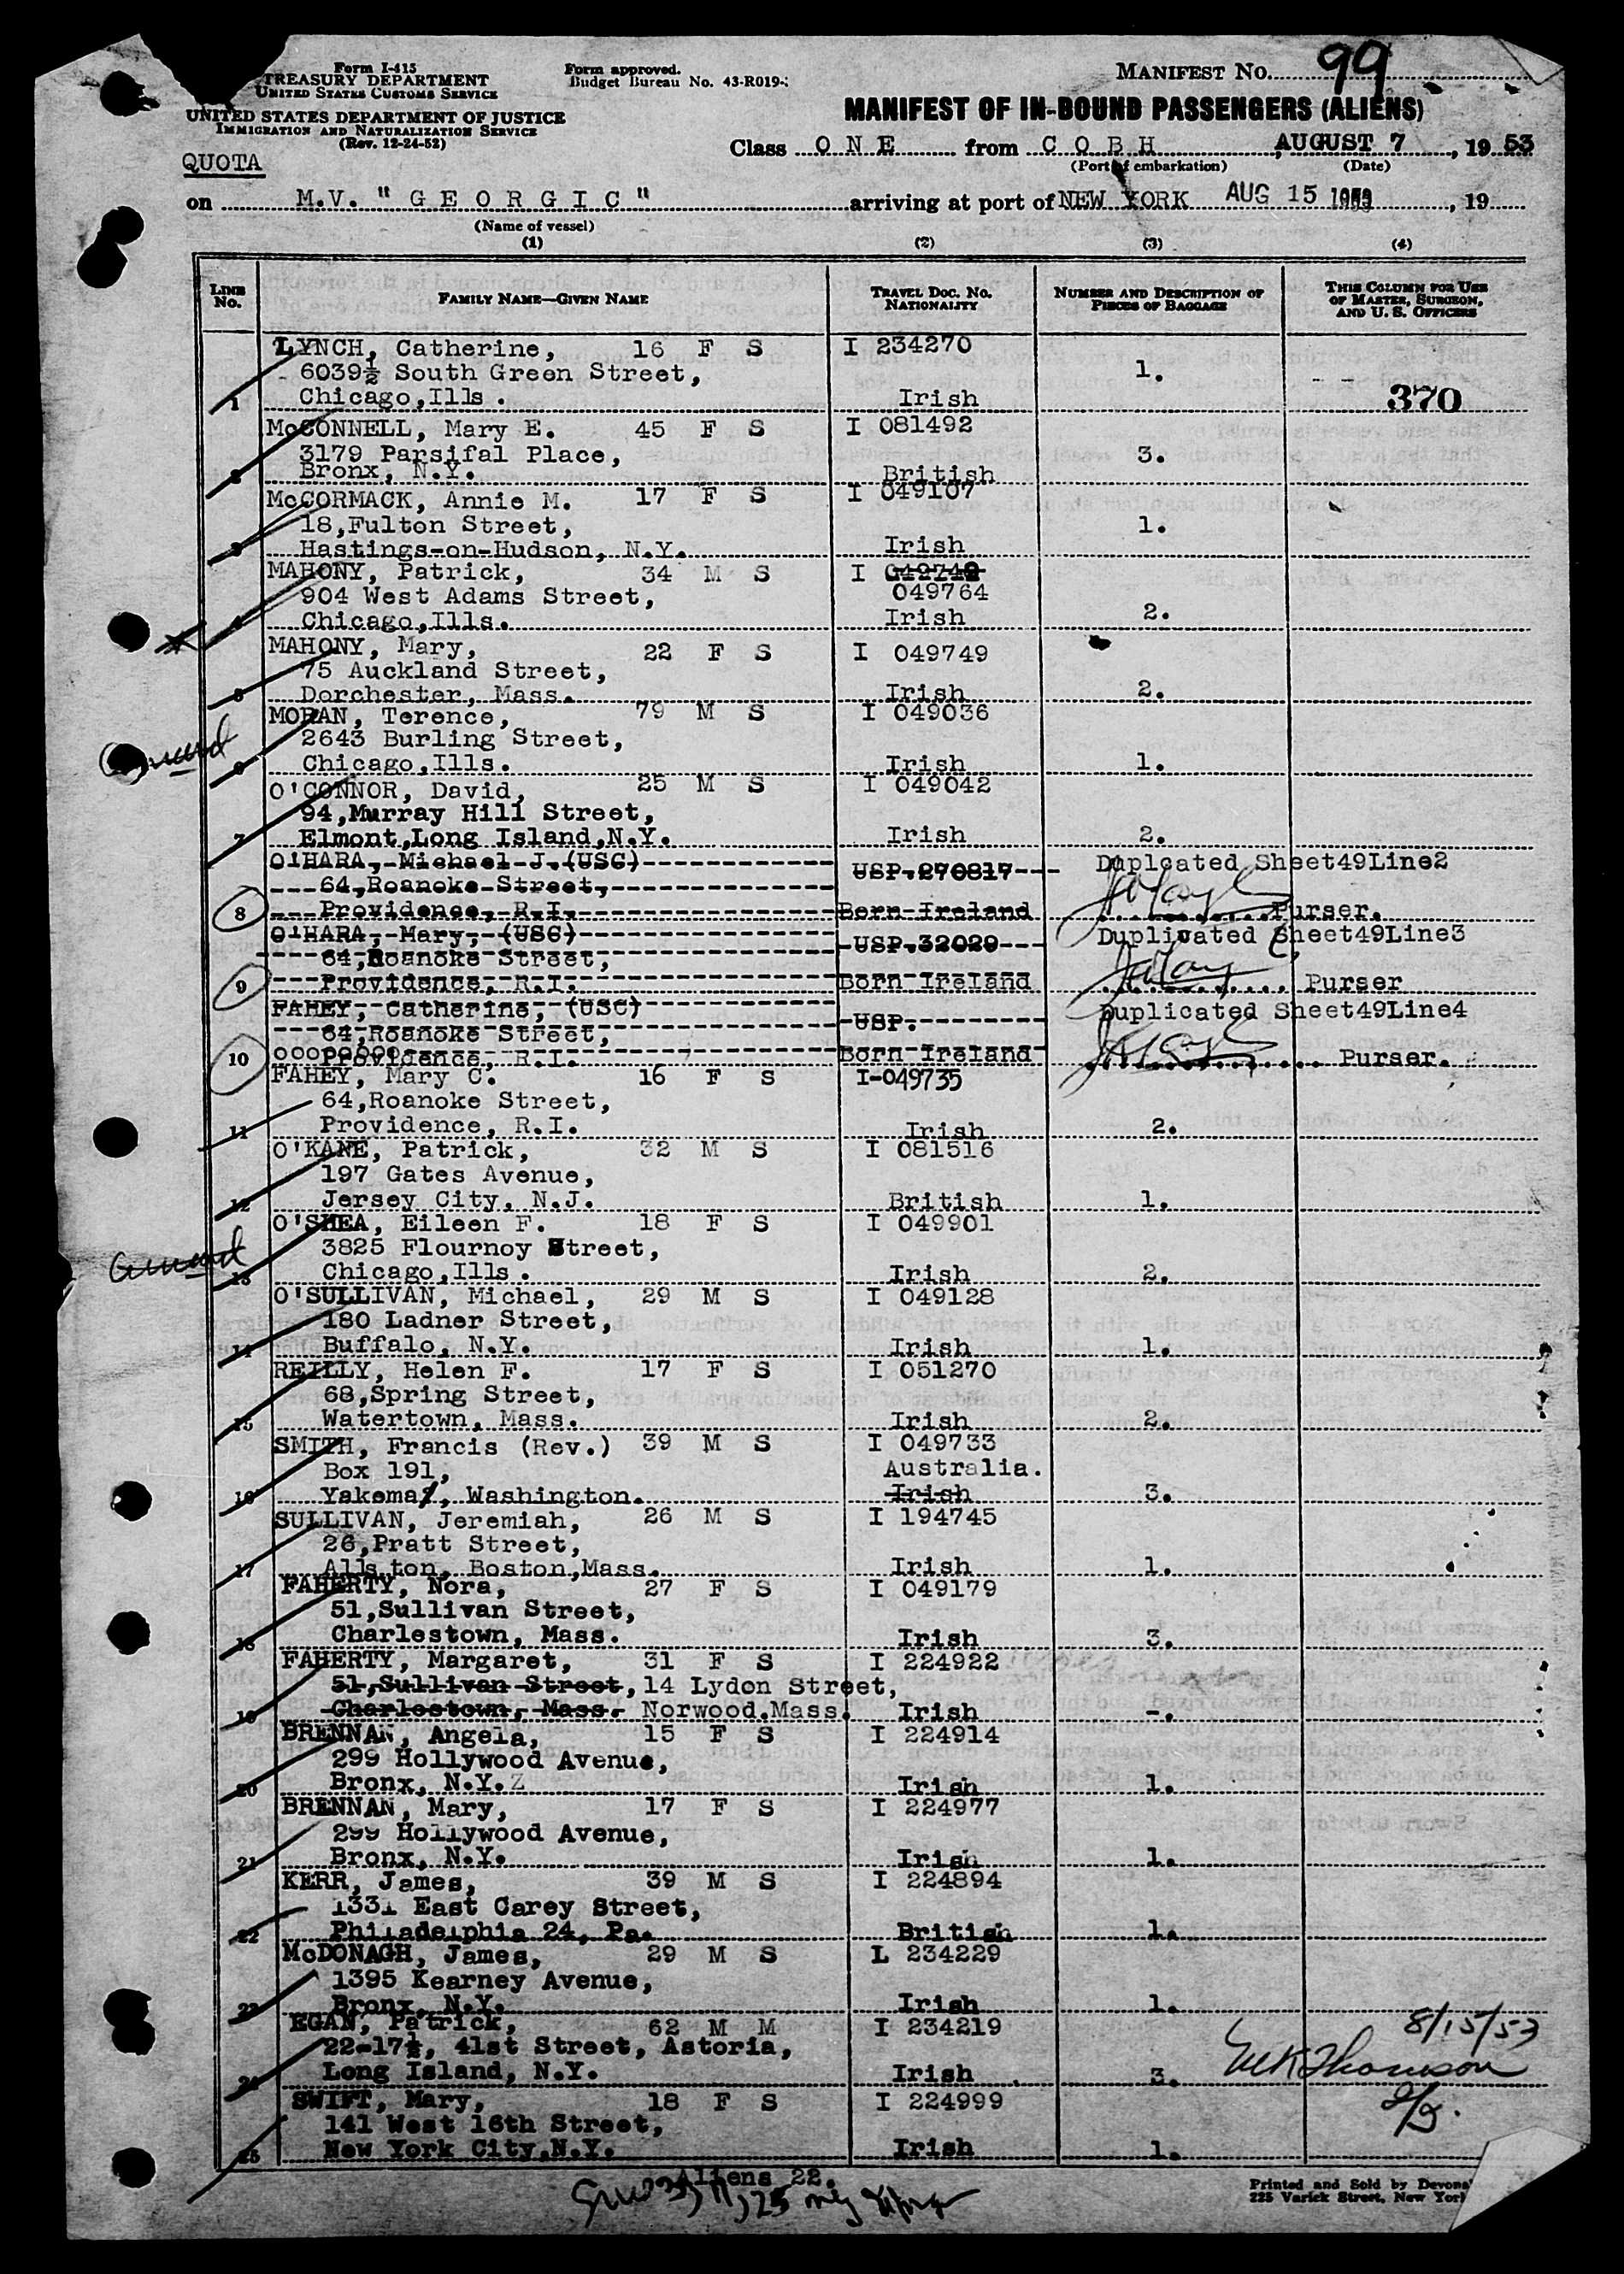 Form I-415
TREASURY DEPARTMENT
UNITED STATES CUSTOMS SERVICE
UNITED STATES DEPARTMENT OF JUSTICE
IMMIGRATION AND NATURALIZATION SERVICE
(Rev. 12-24-52)
QUOTA
Form approved.
Budget Bureau No. 43-R019-
MANIFEST NO. 99
MANIFEST OF IN-BOUND PASSENGERS (ALIENS)
Class ONE from COBH, AUGUST 7, 1953
(Port of embarkation) (Date)
on M.V. "GEORGIC" arriving at port of NEW YORK AUG 15 1953, 19
(Name of vessel)
(1) (2) (3) (4)
LINE No. FAMILY NAME—GIVEN NAME TRAVEL DOC. NO. NATIONALITY NUMBER AND DESCRIPTION OF PIECES OF BAGGAGE THIS COLUMN FOR USE OF MASTER, SURGEON, AND U. S. OFFICERS
LYNCH, Catherine, 16 F S I 234270
6039½ South Green Street, 1.
1 Chicago,Ills. Irish 370
McCONNELL, Mary E. 45 F S I 081492
3179 Parsifal Place, 3.
2 Bronx, N.Y. British
McCORMACK, Annie M. 17 F S I 049107
18,Fulton Street, 1.
3 Hastings-on-Hudson, N.Y. Irish
MAHONY, Patrick, 34 M S I 042749
904 West Adams Street, 049764
4 Chicago,Ills. Irish 2.
MAHONY, Mary, 22 F S I 049749
75 Auckland Street,
5 Dorchester, Mass. Irish 2.
MORAN, Terence, 79 M S I 049036
2643 Burling Street,
6 Chicago,Ills. Irish 1.
O'CONNOR, David, 25 M S I 049042
94,Murray Hill Street,
7 Elmont,Long Island,N.Y. Irish 2.
O'HARA, Michael J.(USC) USP.270817 Duplcated Sheet49Line2
64,Roanoke Street,
8 Providence, R.I. Born Ireland Purser.
O'HARA, Mary, (USC) USP.32029 Duplicated Sheet49Line3
64,Roanoke Street,
9 Providence, R.I. Born Ireland Purser
FAHEY, Catherine, (USC) USP. Duplicated Sheet49Line4
64,Roanoke Street,
10 Providence, R.I. Born Ireland Purser.
FAHEY, Mary C. 16 F S I-049735
64,Roanoke Street,
11 Providence, R.I. Irish 2.
O'KANE, Patrick, 32 M S I 081516
197 Gates Avenue,
12 Jersey City, N.J. British 1.
O'SHEA, Eileen F. 18 F S I 049901
3825 Flournoy Street,
13 Chicago,Ills. Irish 2.
O'SULLIVAN, Michael, 29 M S I 049128
180 Ladner Street,
14 Buffalo, N.Y. Irish 1.
REILLY, Helen F. 17 F S I 051270
68,Spring Street,
15 Watertown, Mass. Irish 2.
SMITH, Francis (Rev.) 39 M S I 049733
Box 191, Australia.
16 Yakema, Washington. Irish 3.
SULLIVAN, Jeremiah, 26 M S I 194745
26,Pratt Street,
17 Allston, Boston,Mass. Irish 1.
FAHERTY, Nora, 27 F S I 049179
51,Sullivan Street,
18 Charlestown, Mass. Irish 3.
FAHERTY, Margaret, 31 F S I 224922
51,Sullivan Street, 14 Lydon Street,
19 Charlestown, Mass. Norwood.Mass. Irish -.
BRENNAN, Angela, 15 F S I 224914
299 Hollywood Avenue,
20 Bronx, N.Y.Z Irish 1.
BRENNAN, Mary, 17 F S I 224977
299 Hollywood Avenue,
21 Bronx, N.Y. Irish 1.
KERR, James, 39 M S I 224894
1331 East Carey Street,
22 Philadelphia 24, Pa. British 1.
McDONAGH, James, 29 M S L 234229
1395 Kearney Avenue,
23 Bronx, N.Y. Irish 1.
EGAN, Patrick, 62 M M I 234219 8/15/53
22-17½, 41st Street, Astoria,
24 Long Island, N.Y. Irish 3.
SWIFT, Mary, 18 F S I 224999
141 West 16th Street,
25 New York City,N.Y. Irish 1.
Aliens 22.
Printed and Sold by Devons
225 Varick Street, New York